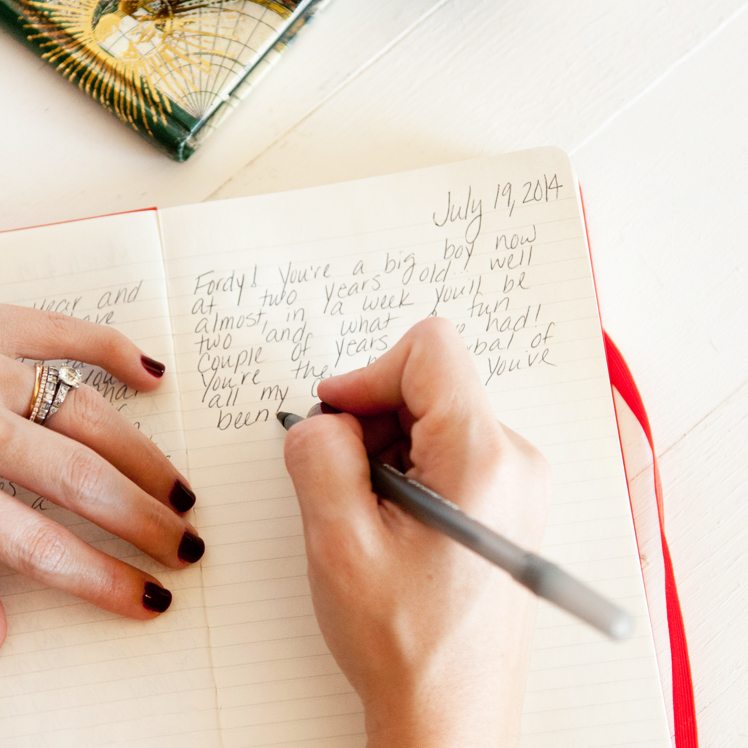 year and
July 19, 2014
Fordy! You're a big boy now
at two years old.. well
almost, in a week you'll be
two and what a fun
couple of years had!
You're the verbal of
all my you've
been